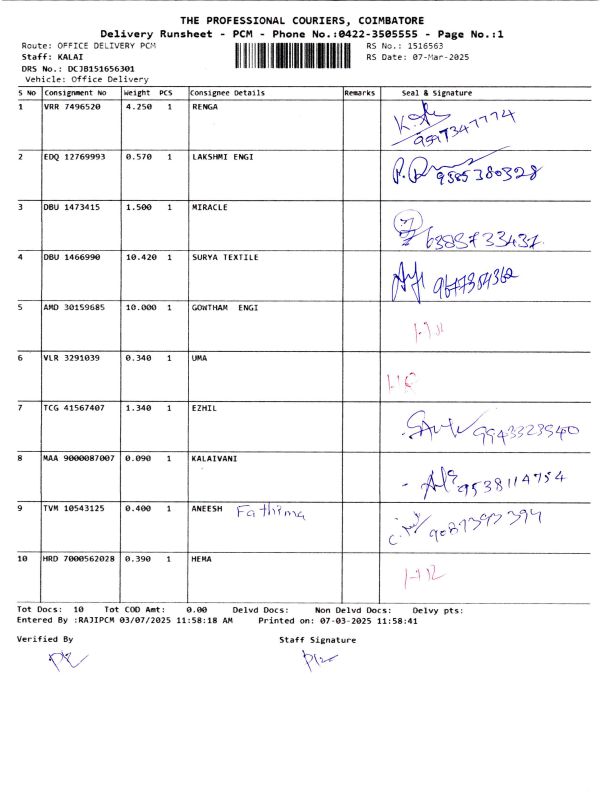 THE PROFESSIONAL COURIERS, COIMBATORE
Delivery Runsheet - PCM - Phone No.:0422-3505555 - Page No.:1
Route: OFFICE DELIVERY PCM RS No.: 1516563
Staff: KALAI RS Date: 07-Mar-2025
DRS No.: DCJB151656301
Vehicle: Office Delivery
S No Consignment No Weight PCS Consignee Details Remarks Seal & Signature
1 VRR 7496520 4.250 1 RENGA
2 EDQ 12769993 0.570 1 LAKSHMI ENGI 9385380328
3 DBU 1473415 1.500 1 MIRACLE
4 DBU 1466990 10.420 1 SURYA TEXTILE
5 AMD 30159685 10.000 1 GOWTHAM ENGI
6 VLR 3291039 0.340 1 UMA
7 TCG 41567407 1.340 1 EZHIL 9943323540
8 MAA 9000087007 0.090 1 KALAIVANI 9538114754
9 TVM 10543125 0.400 1 ANEESH Fathima
10 HRD 7000562028 0.390 1 HEMA
Tot Docs: 10 Tot COD Amt: 0.00 Delvd Docs: Non Delvd Docs: Delvy pts:
Entered By :RAJIPCM 03/07/2025 11:58:18 AM Printed on: 07-03-2025 11:58:41
Verified By Staff Signature